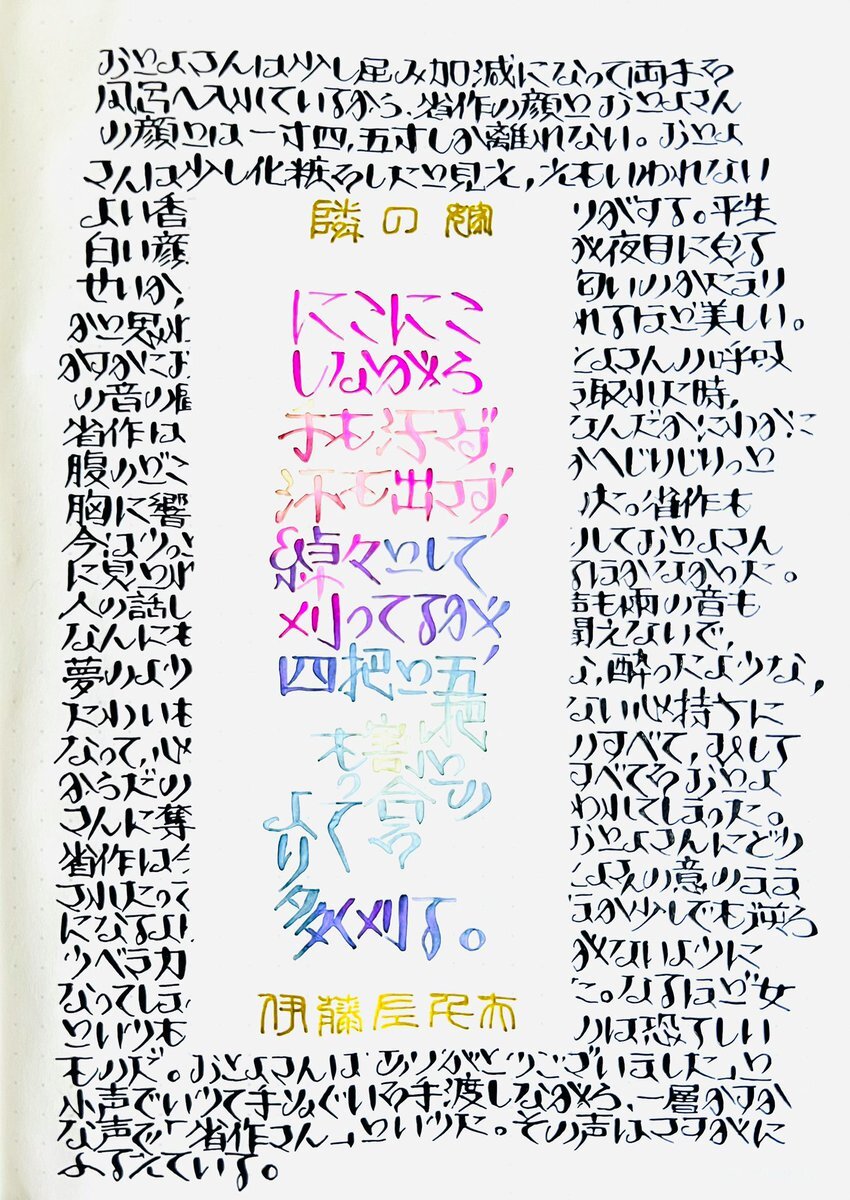 おとよさんは少し屈み加減になって両手を
風呂へ入れているから、省作の顔とおとよさん
の顔とは一寸四、五寸しか離れない。おとよ
さんは少し化粧をしたと見え、えもいわれない
よい香りがする。平生
白い顔が夜目に見る
せいか、匂いのかたまり
かと思われれるほど美しい。
かすかにおとよさんの呼吸
の音の聞取れた時、
省作はなんだかにわかに
腹のどこかへじりじりっと
胸に響いた。省作も
今は しておとよさん
に見とれるほかなかった。
人の話し声も雨の音も
なんにも聞えないで、
夢のような、酔ったような、
たわいもない心持ちに
なって、心のすべて、そして
からだのすべてをおとよ
さんに奪われてしまった。
省作は今おとよさんにどう
されたってとよさんの意の
になるよ 少しでも逆ろ
うべき力がないように
なってしまった。なるほど女
というものは恐ろしい
ものだ。おとよさんは「ありがとうございました」と
小声でいうて手ぬぐいを手渡しながら、一層かすか
な声で「省作さん」といった。その声はさすがに
ふるえている。
隣の嫁
にこにこ
しながら
手も汚さず
汗も出さず、
綽々として
刈ってるが
四把と五把
との
割合を
もって
より
多く刈る。
伊藤左千夫